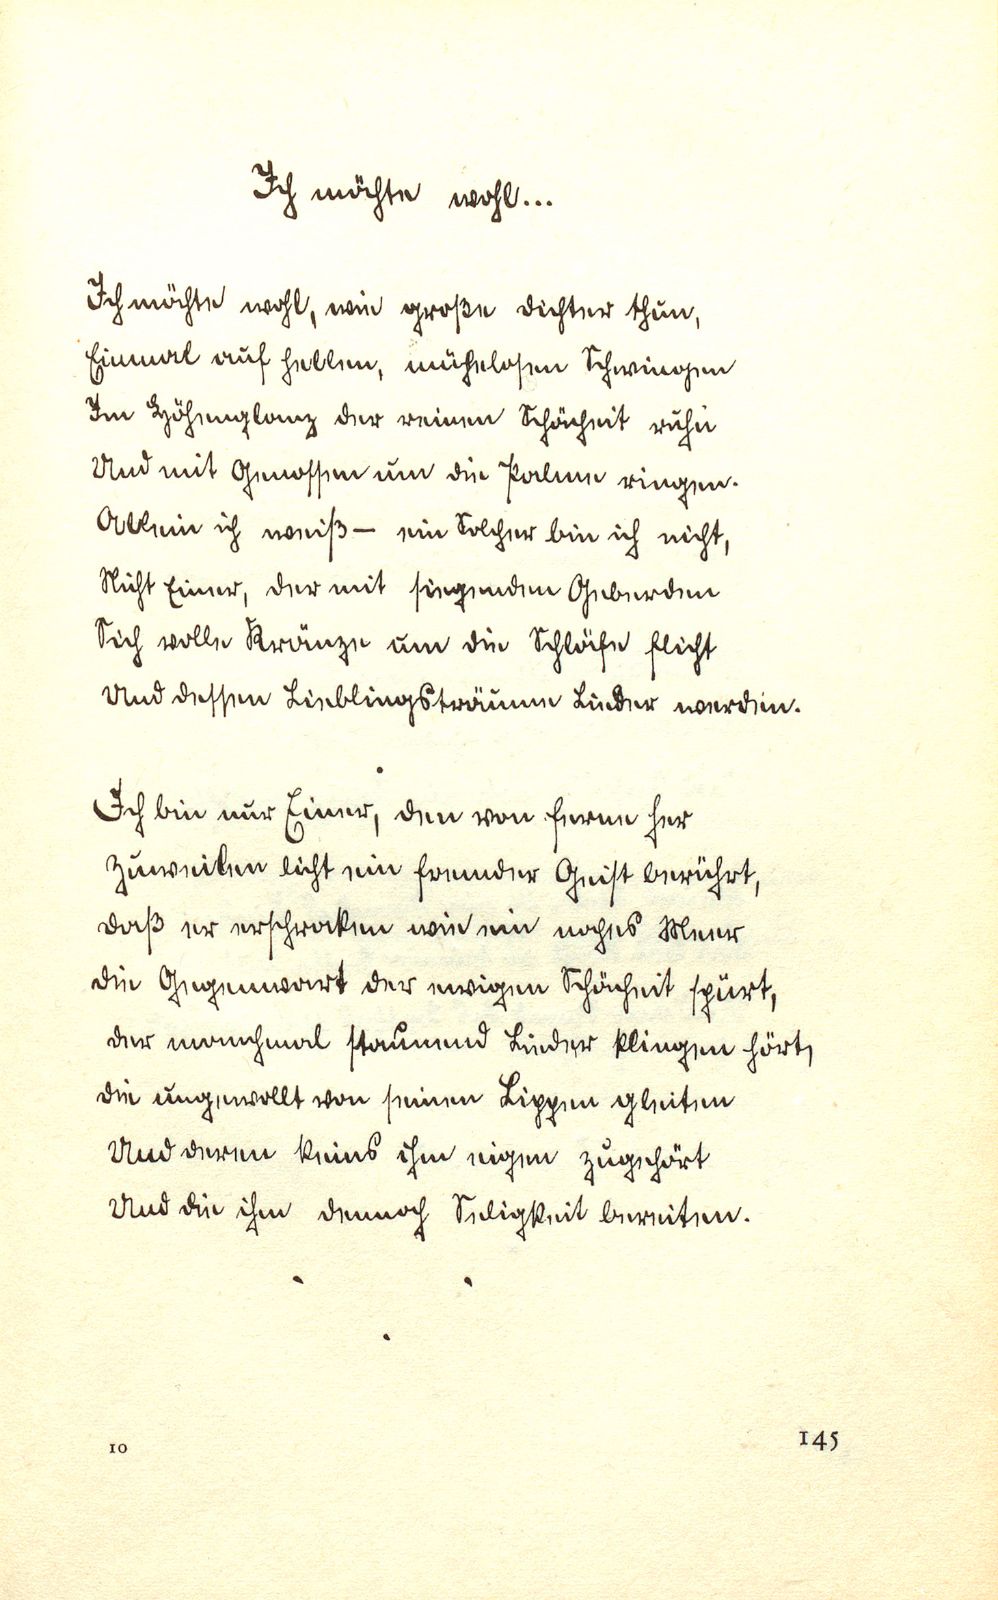 Ich möchte wohl...
Ich möchte wohl, wie große Dichter thun,
Einmal auf hellen, mühelosen Schwingen
Im Höhenglanz der reinen Schönheit ruhn
Und mit Genossen um die Palme ringen.
Allein ich weiß — ein Solcher bin ich nicht,
Nicht Einer, der mit siegenden Geberden
Sich volle Kränze um die Schläfe flicht
Und dessen Lieblingsträume Lieder werden.
Ich bin nur Einer, den von ferne her
Zuweilen licht ein fremder Geist berührt,
Daß er erschrocken wie ein nahes Meer
Die Gegenwart der ewigen Schönheit spürt,
Der manchmal staunend Lieder klingen hört,
Die ungewollt von seinen Lippen gleiten
Und deren keins ihm eigen zugehört
Und die ihm dennoch Seligkeit bereiten.
10
145